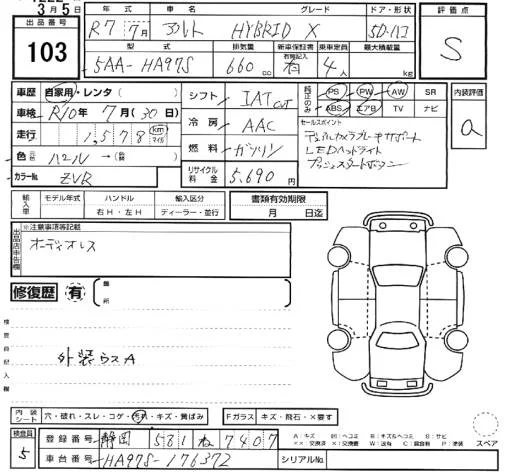 3月5日
出品番号
103
年式 車名 グレード ドア・形状
R7 7月 アルト HYBRID X 5D・ハコ
型式 排気量 新車保証書 有無記入 乗車定員 最大積載量
5AA-HA97S 660cc 有 4人 kg
評価点
S
車歴 自家用・レンタ( )
車検 R10年7月(30日)
走行 1,578 km マイル
色 元色 パール→(替)
カラーNo. ZVR
シフト IAT CVT
冷房 AAC
燃料 ガソリン
リサイクル料金 5,690
純正のみ PS PW AW SR
ABS エアB TV ナビ
セールスポイント
デュアルカメラブレーキサポート
LEDヘッドライト
プッシュスタートボタン
内装評価
a
輸入車 モデル年式 ハンドル 輸入区分
右H・左H ディーラー・並行
書類有効期限
月 日迄
出品店申告欄
※注意事項等記載
オーディオレス
修復歴 有 箇所
検査員記入欄
外装ウスA
内装シート 穴・破れ・スレ・コゲ・汚れ・キズ・黄ばみ
Fガラス キズ・飛石・×要す
検査員
5
登録番号 静岡 581 ね 7407
車台番号 HA97S-176372
シリアルNo.
A:キズ U:ヘコミ B:キズ&ヘコミ S:サビ
××:交換済 X:交換要 W:波有 C:腐食有 P:塗装
スペア